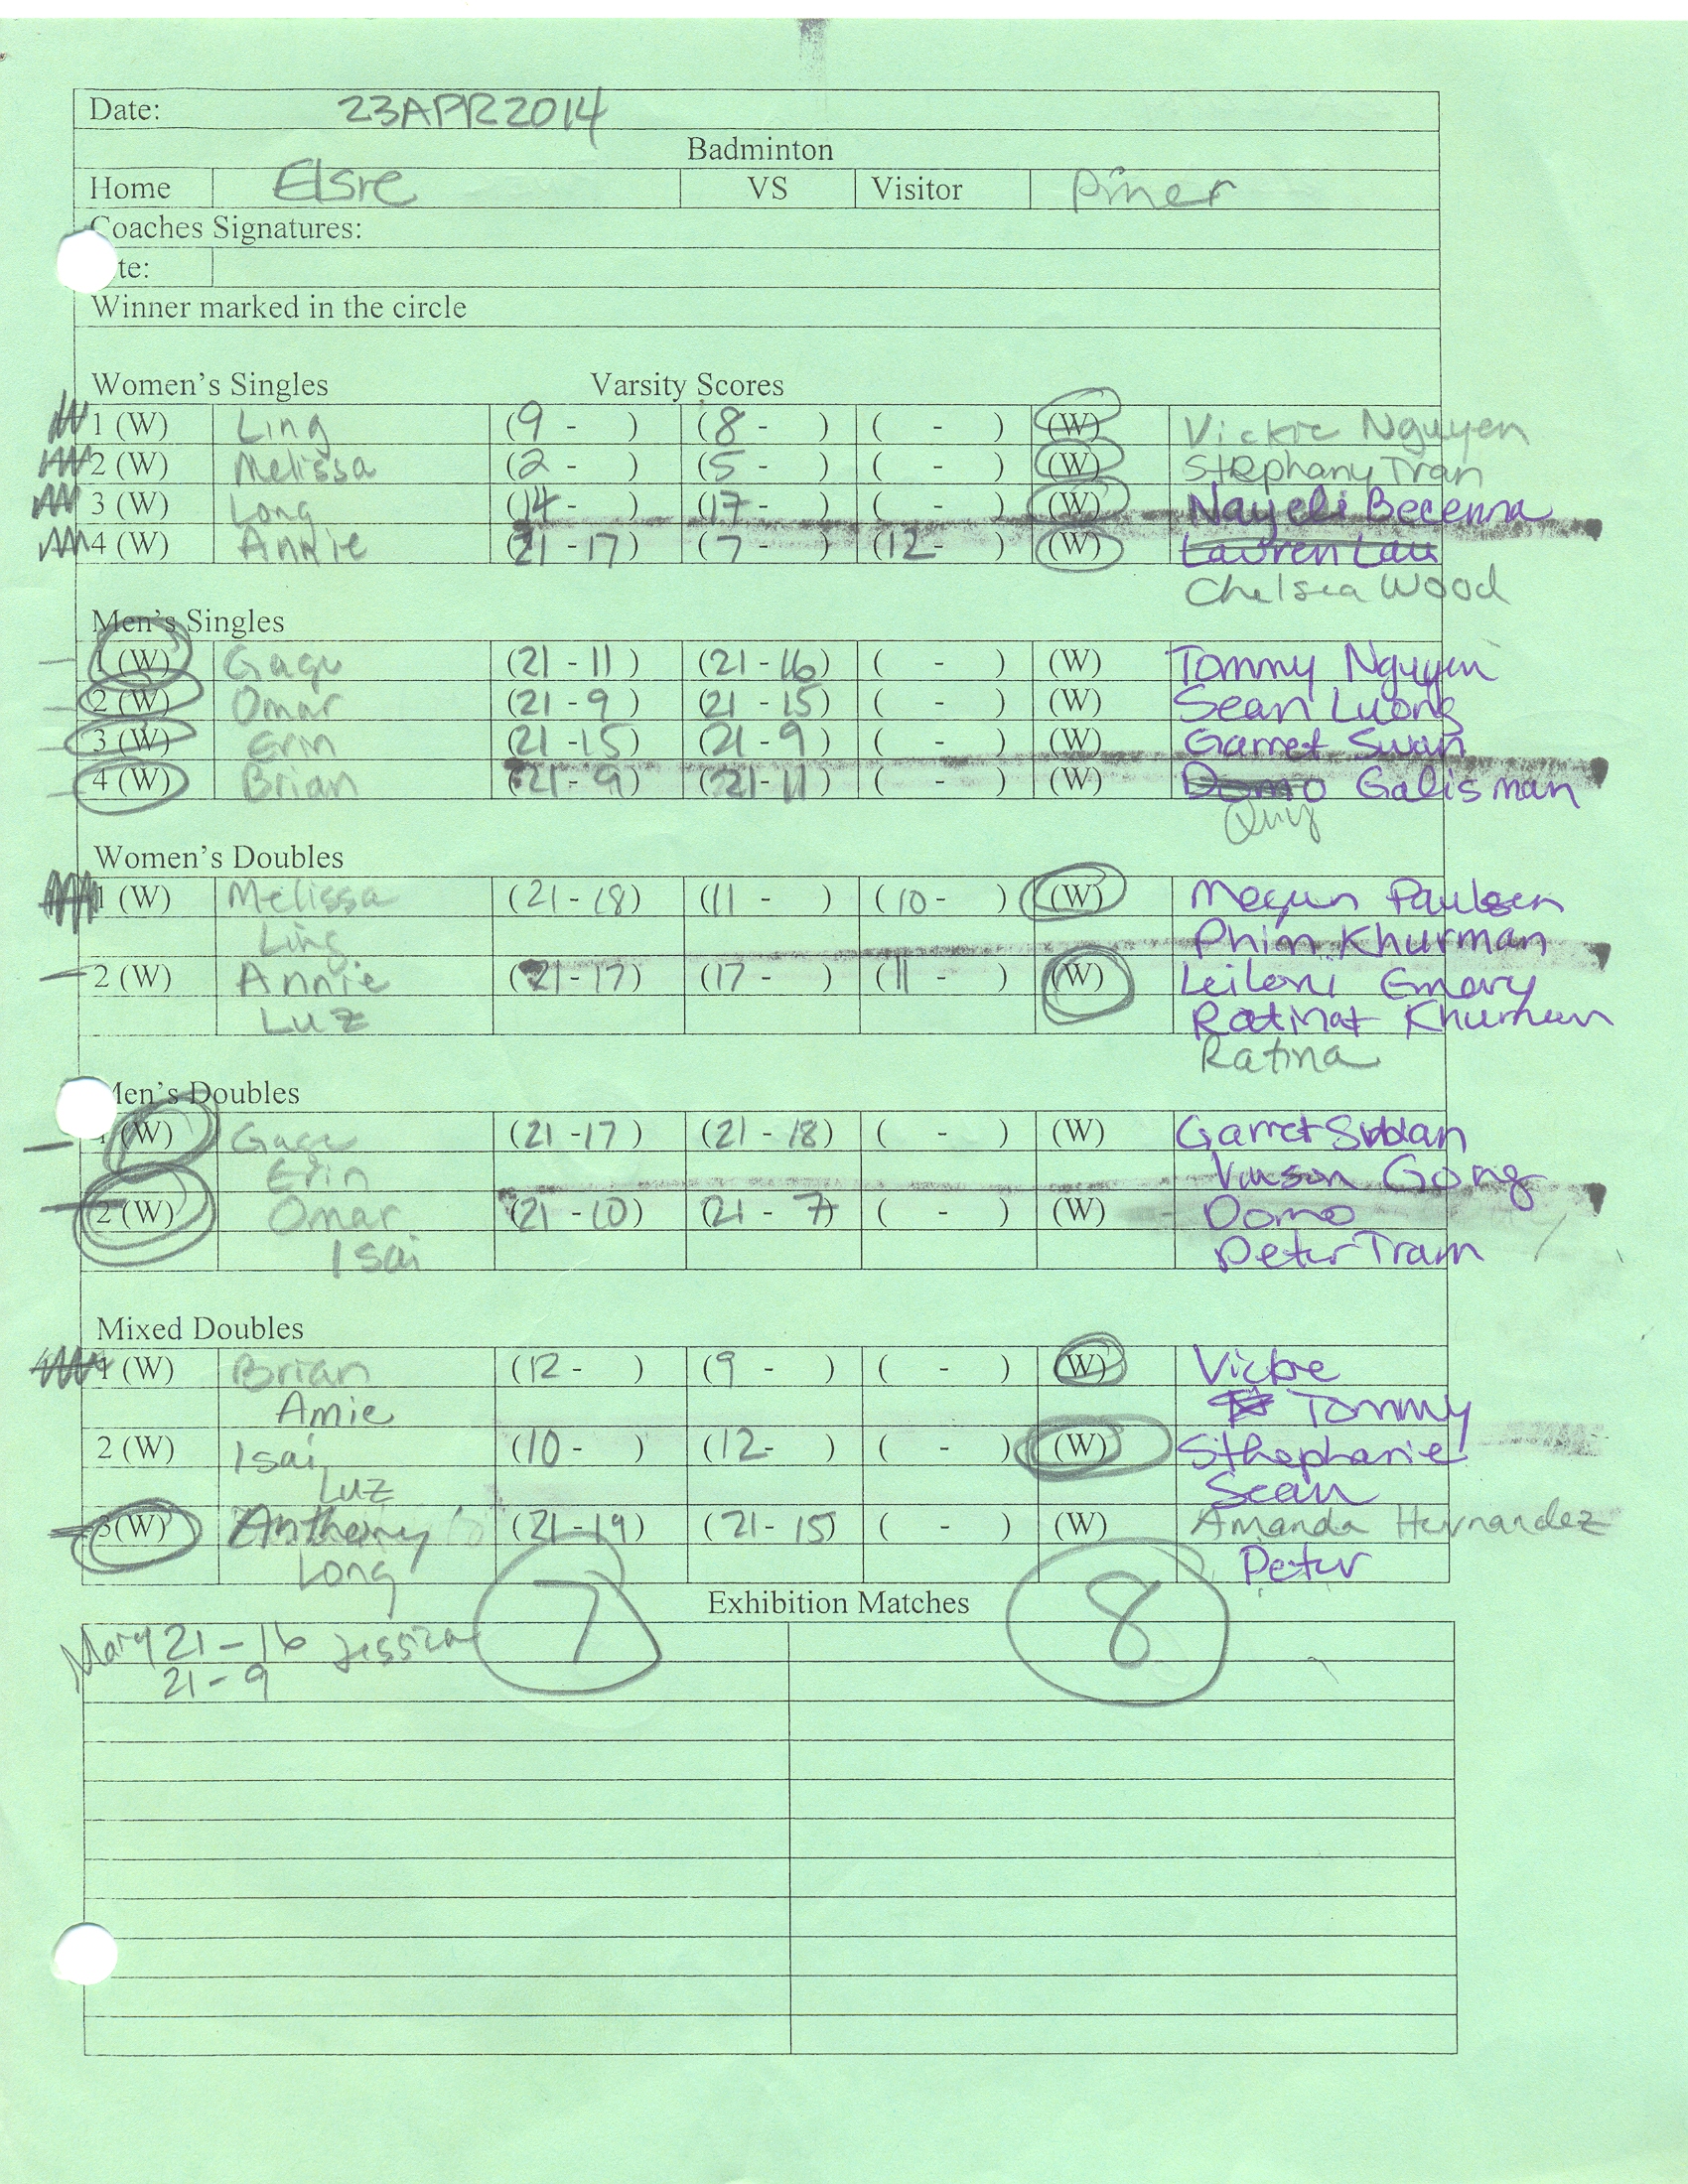 Date: 23APR2014
Badminton
Home Elsre VS Visitor Piner
Coaches Signatures:
te:
Winner marked in the circle
Women's Singles Varsity Scores
1 (W) Ling (9 - ) (8 - ) ( - ) (W) Vickie Nguyen
2 (W) Melissa (2 - ) (5 - ) ( - ) (W) Stephany Tran
3 (W) Long (14 - ) (17 - ) ( - ) (W) Nayeli Becerra
4 (W) Annie (21 - 17) (7 - ) (12 - ) (W) Lauren Lau
Chelsea Wood
Men's Singles
1 (W) Gage (21 - 11) (21 - 16) ( - ) (W) Tommy Nguyen
2 (W) Omar (21 - 9) (21 - 15) ( - ) (W) Sean Luong
3 (W) Erin (21 - 15) (21 - 9) ( - ) (W) Garret Swan
4 (W) Brian (21 - 9) (21 - 11) ( - ) (W) Domo Galisman
Quy
Women's Doubles
1 (W) Melissa (21 - 18) (11 - ) (10 - ) (W) Megun Paulsen
Ling Phim Khurman
2 (W) Annie (21 - 17) (17 - ) (11 - ) (W) Leiloni Emery
Luz Ratinat Khurman
Ratina
Men's Doubles
1 (W) Gage (21 - 17) (21 - 18) ( - ) (W) Garret
Erin Vinson Gong
2 (W) Omar (21 - 10) (21 - 7) ( - ) (W) Domo
Isai Peter Tram
Mixed Doubles
1 (W) Brian (12 - ) (9 - ) ( - ) (W) Vickie
Amie Tommy
2 (W) Isai (10 - ) (12 - ) ( - ) (W) Sthephanie
Luz Sean
3 (W) Anthony (21 - 19) (21 - 15) ( - ) (W) Amanda Hernandez
Long Peter
7 Exhibition Matches 8
Mary 21 - 16 Jessica
21 - 9